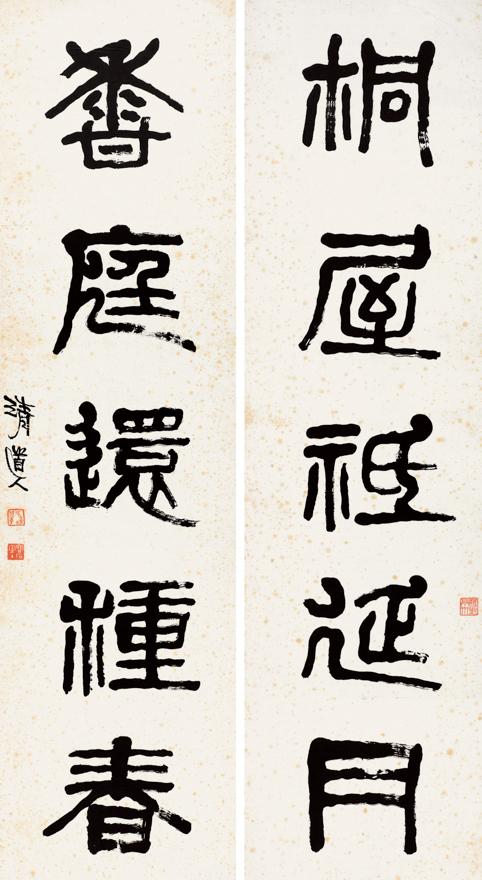 桐屋祗延月
香庭還種春
清道人